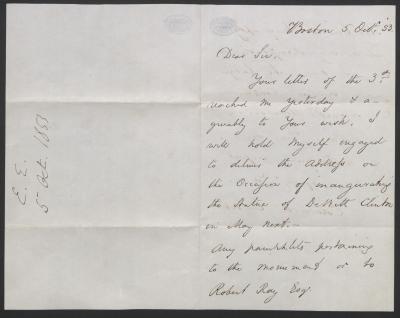 Boston 5. Oct. '53.
Dear Sir,
Your letter of the 3d
reached me yesterday & a-
greably to your wish, I
will hold myself engaged
to deliver the Address on
the Occasion of inaugurating
the Statue of De Witt Clinton
in May next.
Any pamphlets pertaining
to the monument or to
Robert Ray Esq.
E. E.
5 Oct. 1853